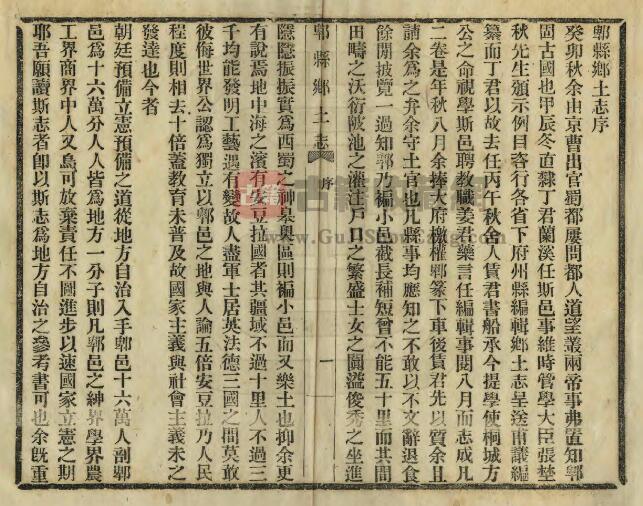 郫縣鄉土志序
癸卯秋余由京曹出官蜀都屢問都人道望叢兩帝事弗置知郫
固古國也甲辰冬直隸丁君蘭溪任斯邑事維時管學大臣張埜
秋先生頒示例目咨行各省下府州縣編輯鄉土志呈送甫叢編
纂而丁君以故去任丙午秋余人賃君書船承今提學使桐城方
公之命視學斯邑聘教職姜君藥言任編輯事閱八月而志成凡
二卷是年秋八月余捧大府檄權郫篆下車後賃君先以質余且
請余為之弁余守土官也凡縣事均應知之不敢以不文辭退食
餘閒披覽一過知郫乃褊小邑截長補短曾不能五十里而其間
田疇之沃衍陂池之灌注戶口之繁盛士女之闐溢俊秀之坐進
隱隱振振實為西蜀之神皋奧區則褊小邑而又樂土也抑余更
有說焉地中海之濱有安豆拉國者其疆域不過十里人不過三
千均能發明工藝遇有變故人盡軍士居英法德三國之間莫敢
彼侮世界公認為獨立以郫邑之地與人論五倍安豆拉乃人民
程度則相去十倍蓋教育未普及故國家主義與社會主義未之
發達也今者
朝廷預備立憲預備之道從地方自治入手郫邑十六萬人剖郫
邑為十六萬分人人皆為地方一分子則凡郫邑之紳界學界農
工界商界中人又烏可放棄責任不圖進步以速國家立憲之期
耶吾願讀斯志者卽以斯志為地方自治之參考書可也余既重
郫縣鄉土志
序
一
古籍收藏網
www.GuJiShouCang.com